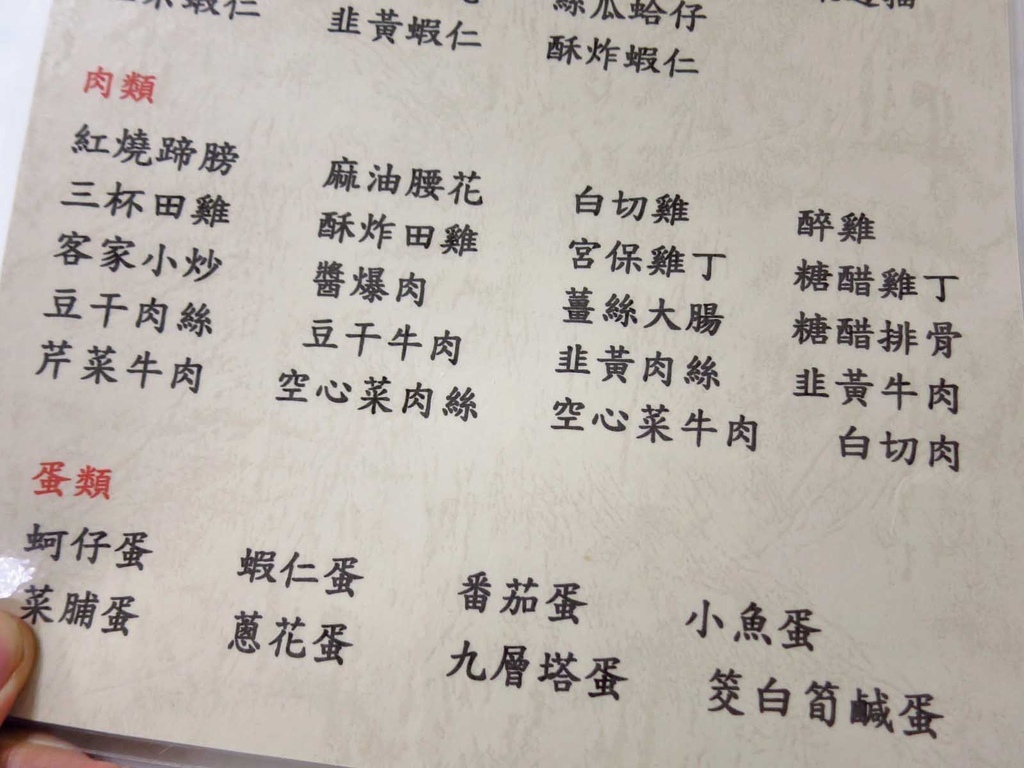 蝦仁
韭黃蝦仁
絲瓜蛤仔
酥炸蝦仁
肉類
紅燒蹄膀 麻油腰花 白切雞 醉雞
三杯田雞 酥炸田雞 宮保雞丁 糖醋雞丁
客家小炒 醬爆肉 薑絲大腸 糖醋排骨
豆干肉絲 豆干牛肉 韭黃肉絲 韭黃牛肉
芹菜牛肉 空心菜肉絲 空心菜牛肉 白切肉
蛋類
蚵仔蛋 蝦仁蛋 番茄蛋 小魚蛋
菜脯蛋 蔥花蛋 九層塔蛋 筊白筍鹹蛋